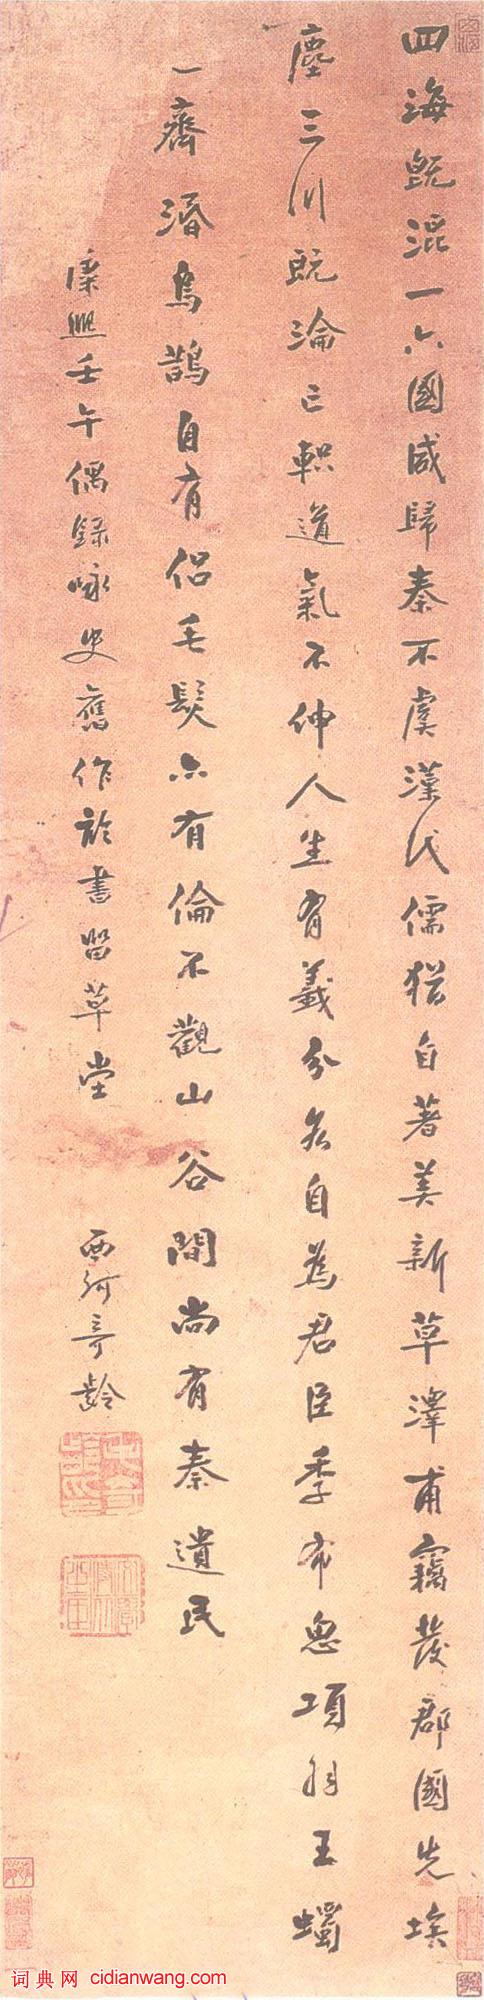 四海既混一六國咸歸秦不虞漢氏儒猶自著美新草澤甫竊發郡國先埃
塵三川既淪亡軹道氣不伸人生有義分各自為君臣季布忠項羽王蠋
一齊湣烏鵲自有侣毛髮亦有倫不觀山谷間尚有秦遺民
康熙壬午偶錄咏史舊作於書留草堂
西河奇齡
词典网 cidianwang.com